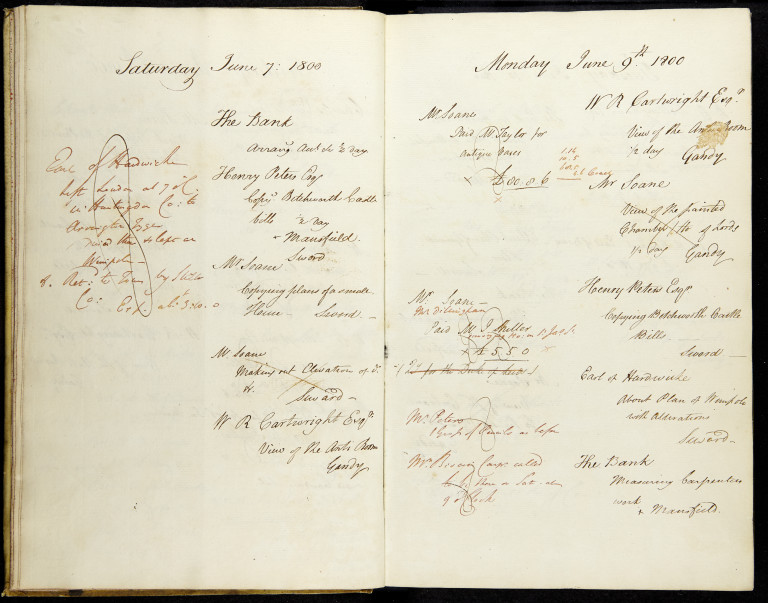 Saturday June 7: 1800
The Bank
Arrang Act de ½ day
Henry Peters Esq
Copy Betchworth Castle
bills ½ day
Mansfield.
Sword
Mr. Soane
Copying plans of a small
House Sword
Mr Soane
Making out Elevation of Do
Seward
W R Cartwright Esqr.
View of the Anti Room
Gandy
Earl of Hardwicke
left London at 7
in Huntingdon Co: to
Arrington
dined then slept at
Wimpole
& Ret: to Town by
Co:
Exp: 3:10.0
Monday June 9th. 1800
W R Cartwright Esqr.
View of the Anti Room
½ day Gandy
Mr Soane
View of the painted
Chamber Ho of Lords
½ day Gandy
Henry Peters Esqr
Copying Betchworth Castle
Bills
Sword
Earl of Hardwicke
About Plan of Wimpole
with Alterations
Seward
The Bank
Measuring Carpenters
work
& Mansfield.
Mr Soane
Paid Mr Taylor for
Antique Vases
x £ 00.8.6
x
Mr. Soane
Paid Mr J
x £ 5 5 0
for the
Mr Peters
of as before
Mr called
on Sat.
9 o'Clock